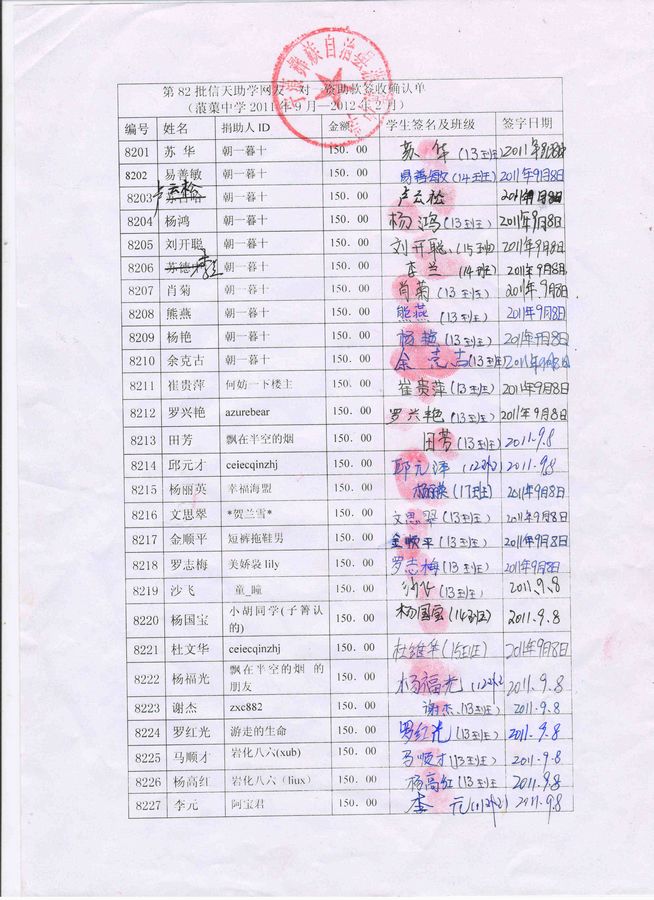 第82批信天助学网友一对一资助款签收确认单
（蒗蕖中学2011年9月—2012年2月）
编号 姓名 捐助人ID 金额 学生签名及班级 签字日期
8201 苏华 朝一暮十 150.00 苏华(13班) 2011年9月8日
8202 易善敏 朝一暮十 150.00 易善敏(14班) 2011年9月8日
8203 卢云松 朝一暮十 150.00 卢云松 2011年9月8日
8204 杨鸿 朝一暮十 150.00 杨鸿(13班) 2011年9月8日
8205 刘开聪 朝一暮十 150.00 刘开聪(15班) 2011年9月8日
8206 朝一暮十 150.00 李兰(14班) 2011年9月8日
8207 肖菊 朝一暮十 150.00 肖菊(13班) 2011年9月8日
8208 熊燕 朝一暮十 150.00 熊燕(13班) 2011年9月8日
8209 杨艳 朝一暮十 150.00 杨艳(13班) 2011年9月8日
8210 余克古 朝一暮十 150.00 余克古(13班) 2011年9月8日
8211 崔贵萍 何妨一下楼主 150.00 崔贵萍(13班) 2011年9月8日
8212 罗兴艳 azurebear 150.00 罗兴艳(13班) 2011年9月8日
8213 田芳 飘在半空的烟 150.00 田芳(13班) 2011.9.8
8214 邱元才 ceiecqinzhj 150.00 邱元泽 2011.9.8
8215 杨丽英 幸福海盟 150.00 杨丽英(17班) 2011年9月8日
8216 文思翠 *贺兰雪* 150.00 文思翠(13班) 2011年9月8日
8217 金顺平 短裤拖鞋男 150.00 金顺平(13班) 2011年9月8日
8218 罗志梅 美娇袋lily 150.00 罗志梅(13班) 2011年9月8日
8219 沙飞 童_瞳 150.00 沙飞(13班) 2011.9.8
8220 杨国宝 小胡同学(子箐认的) 150.00 杨国宝(14班) 2011.9.8
8221 杜文华 ceiecqinzhj 150.00 杜维华(15班) 2011年9月8日
8222 杨福光 飘在半空的烟 的朋友 150.00 杨福光 2011.9.8
8223 谢杰 zxc882 150.00 谢杰(13班) 2011.9.8
8224 罗红光 游走的生命 150.00 罗红光(13班) 2011.9.8
8225 马顺才 岩化八六(xub) 150.00 马顺才(13班) 2011.9.8
8226 杨高红 岩化八六（liux） 150.00 杨高红(13班) 2011.9.8
8227 李元 阿宝君 150.00 李元 2011.9.8